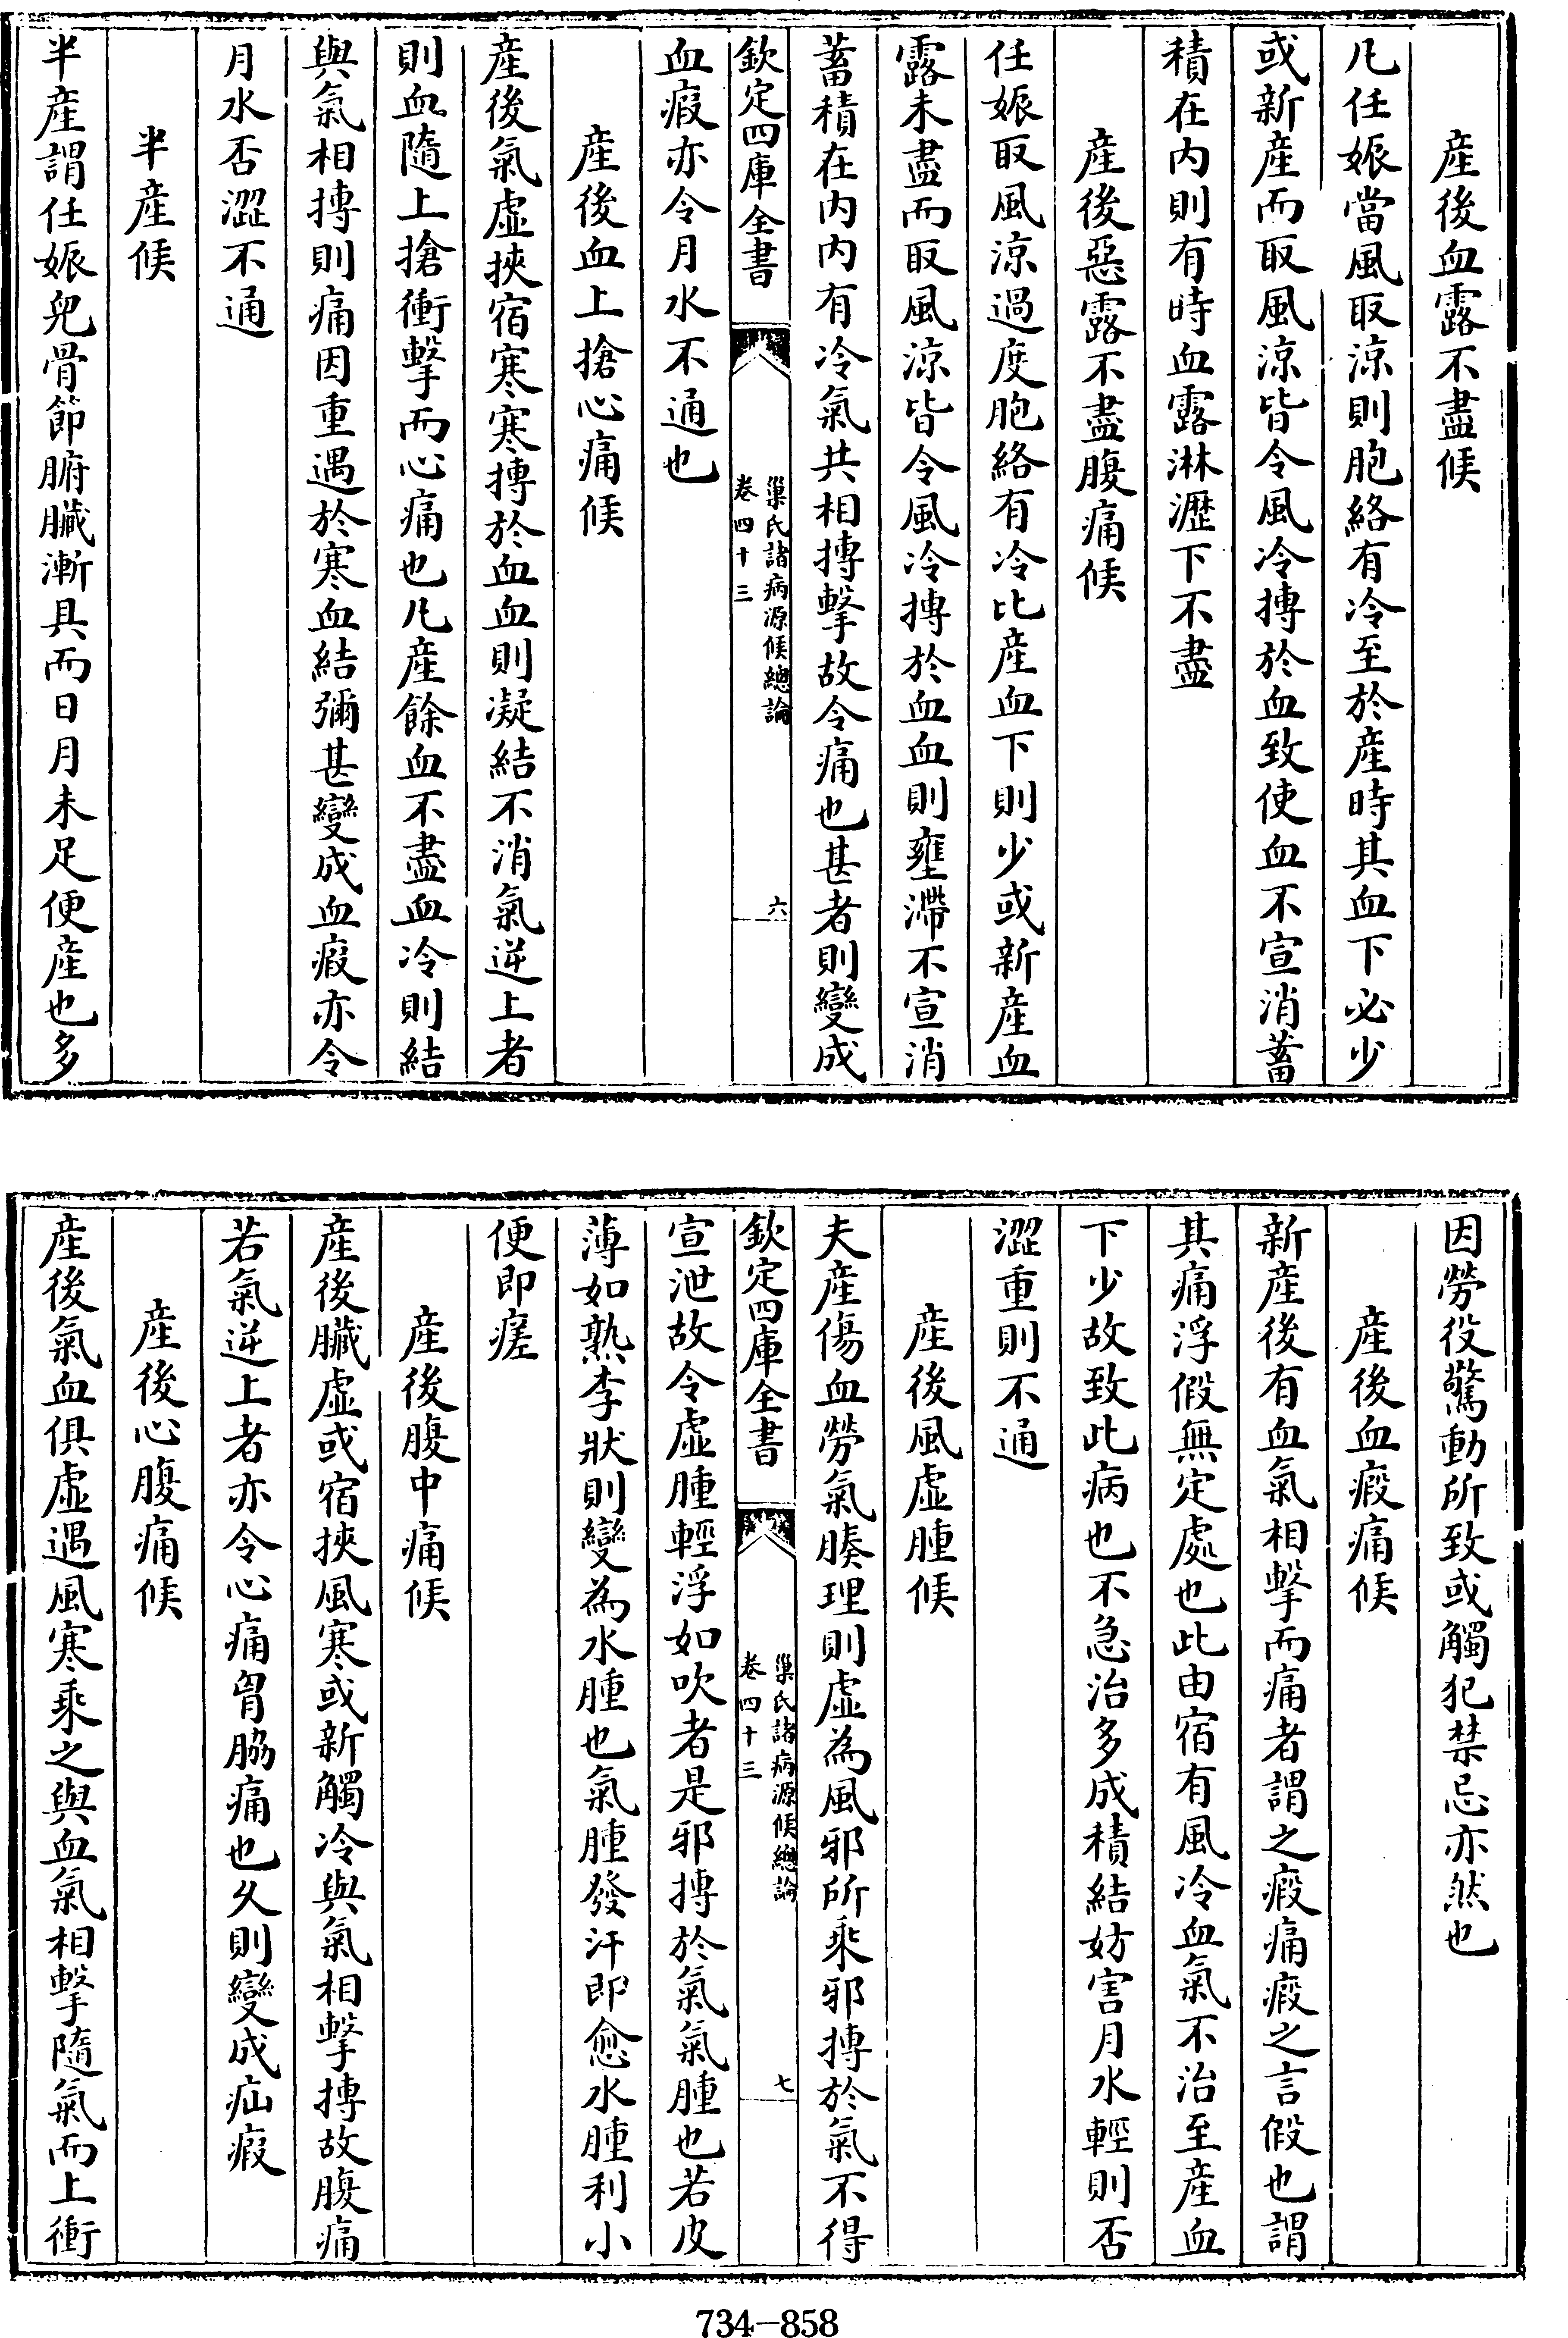 産後血露不盡候
凡任娠當風取涼則胞絡有冷至於産時其血下必少
或新産而取風涼皆令風冷搏於血致使血不宣消蓄
積在内則有時血露淋瀝下不盡
産後惡露不盡腹痛候
任娠取風涼過度胞絡有冷比産血下則少或新産血
露未盡而取風涼皆令風冷搏於血血則壅滯不宣消
蓄積在内内有冷氣共相搏擊故令痛也甚者則變成
欽定四庫全書
巢氏諸病源候總論
卷四十三
六
血瘕亦令月水不通也
産後血上搶心痛候
産後氣虛挾宿寒寒搏於血血則凝結不消氣逆上者
則血隨上搶衝擊而心痛也凡産餘血不盡血冷則結
與氣相搏則痛因重遇於寒血結彌甚變成血瘕亦令
月水否澀不通
半産候
半産謂任娠兒骨節腑臟漸具而日月未足便産也多
因勞役驚動所致或觸犯禁忌亦然也
産後血瘕痛候
新産後有血氣相擊而痛者謂之瘕痛瘕之言假也謂
其痛浮假無定處也此由宿有風冷血氣不治至産血
下少故致此病也不急治多成積結妨害月水輕則否
澀重則不通
産後風虛腫候
夫産傷血勞氣腠理則虛為風邪所乘邪搏於氣不得
欽定四庫全書
巢氏諸病源候總論
卷四十三
七
宣泄故令虛腫輕浮如吹者是邪搏於氣氣腫也若皮
薄如熟李狀則變為水腫也氣腫發汗即愈水腫利小
便即瘥
産後腹中痛候
産後臟虛或宿挾風寒或新觸冷與氣相擊搏故腹痛
若氣逆上者亦令心痛胷脇痛也久則變成疝瘕
産後心腹痛候
産後氣血俱虛遇風寒乘之與血氣相擊隨氣而上衝
734-858